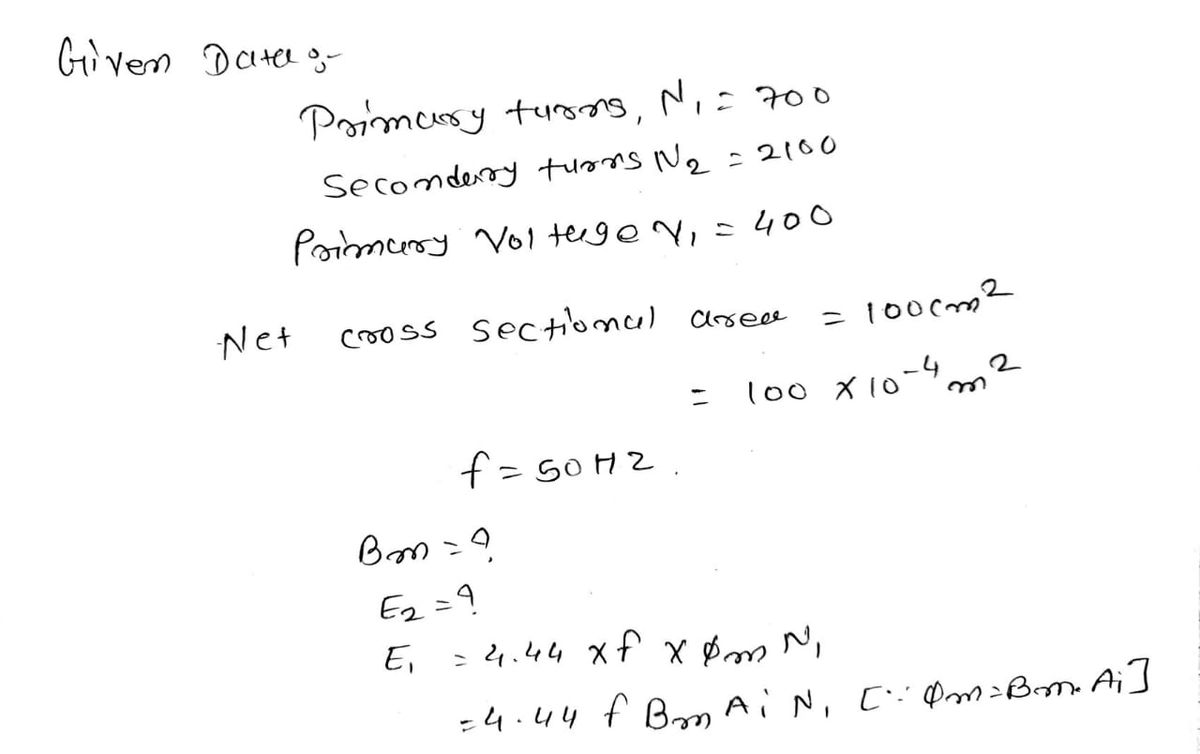 Given Data :-
Primary turns, N₁ = 700
Secondary turns N₂ = 2100
Primary Voltage V₁ = 400
Net cross sectional area = 100cm²
= 100 × 10⁻⁴ m²
f = 50HZ.
Bm = ?
E₂ = ?
E₁ = 4.44 × f × Φm N₁
= 4.44 f Bm Ai N₁ [∵ Φm = Bm. Ai]